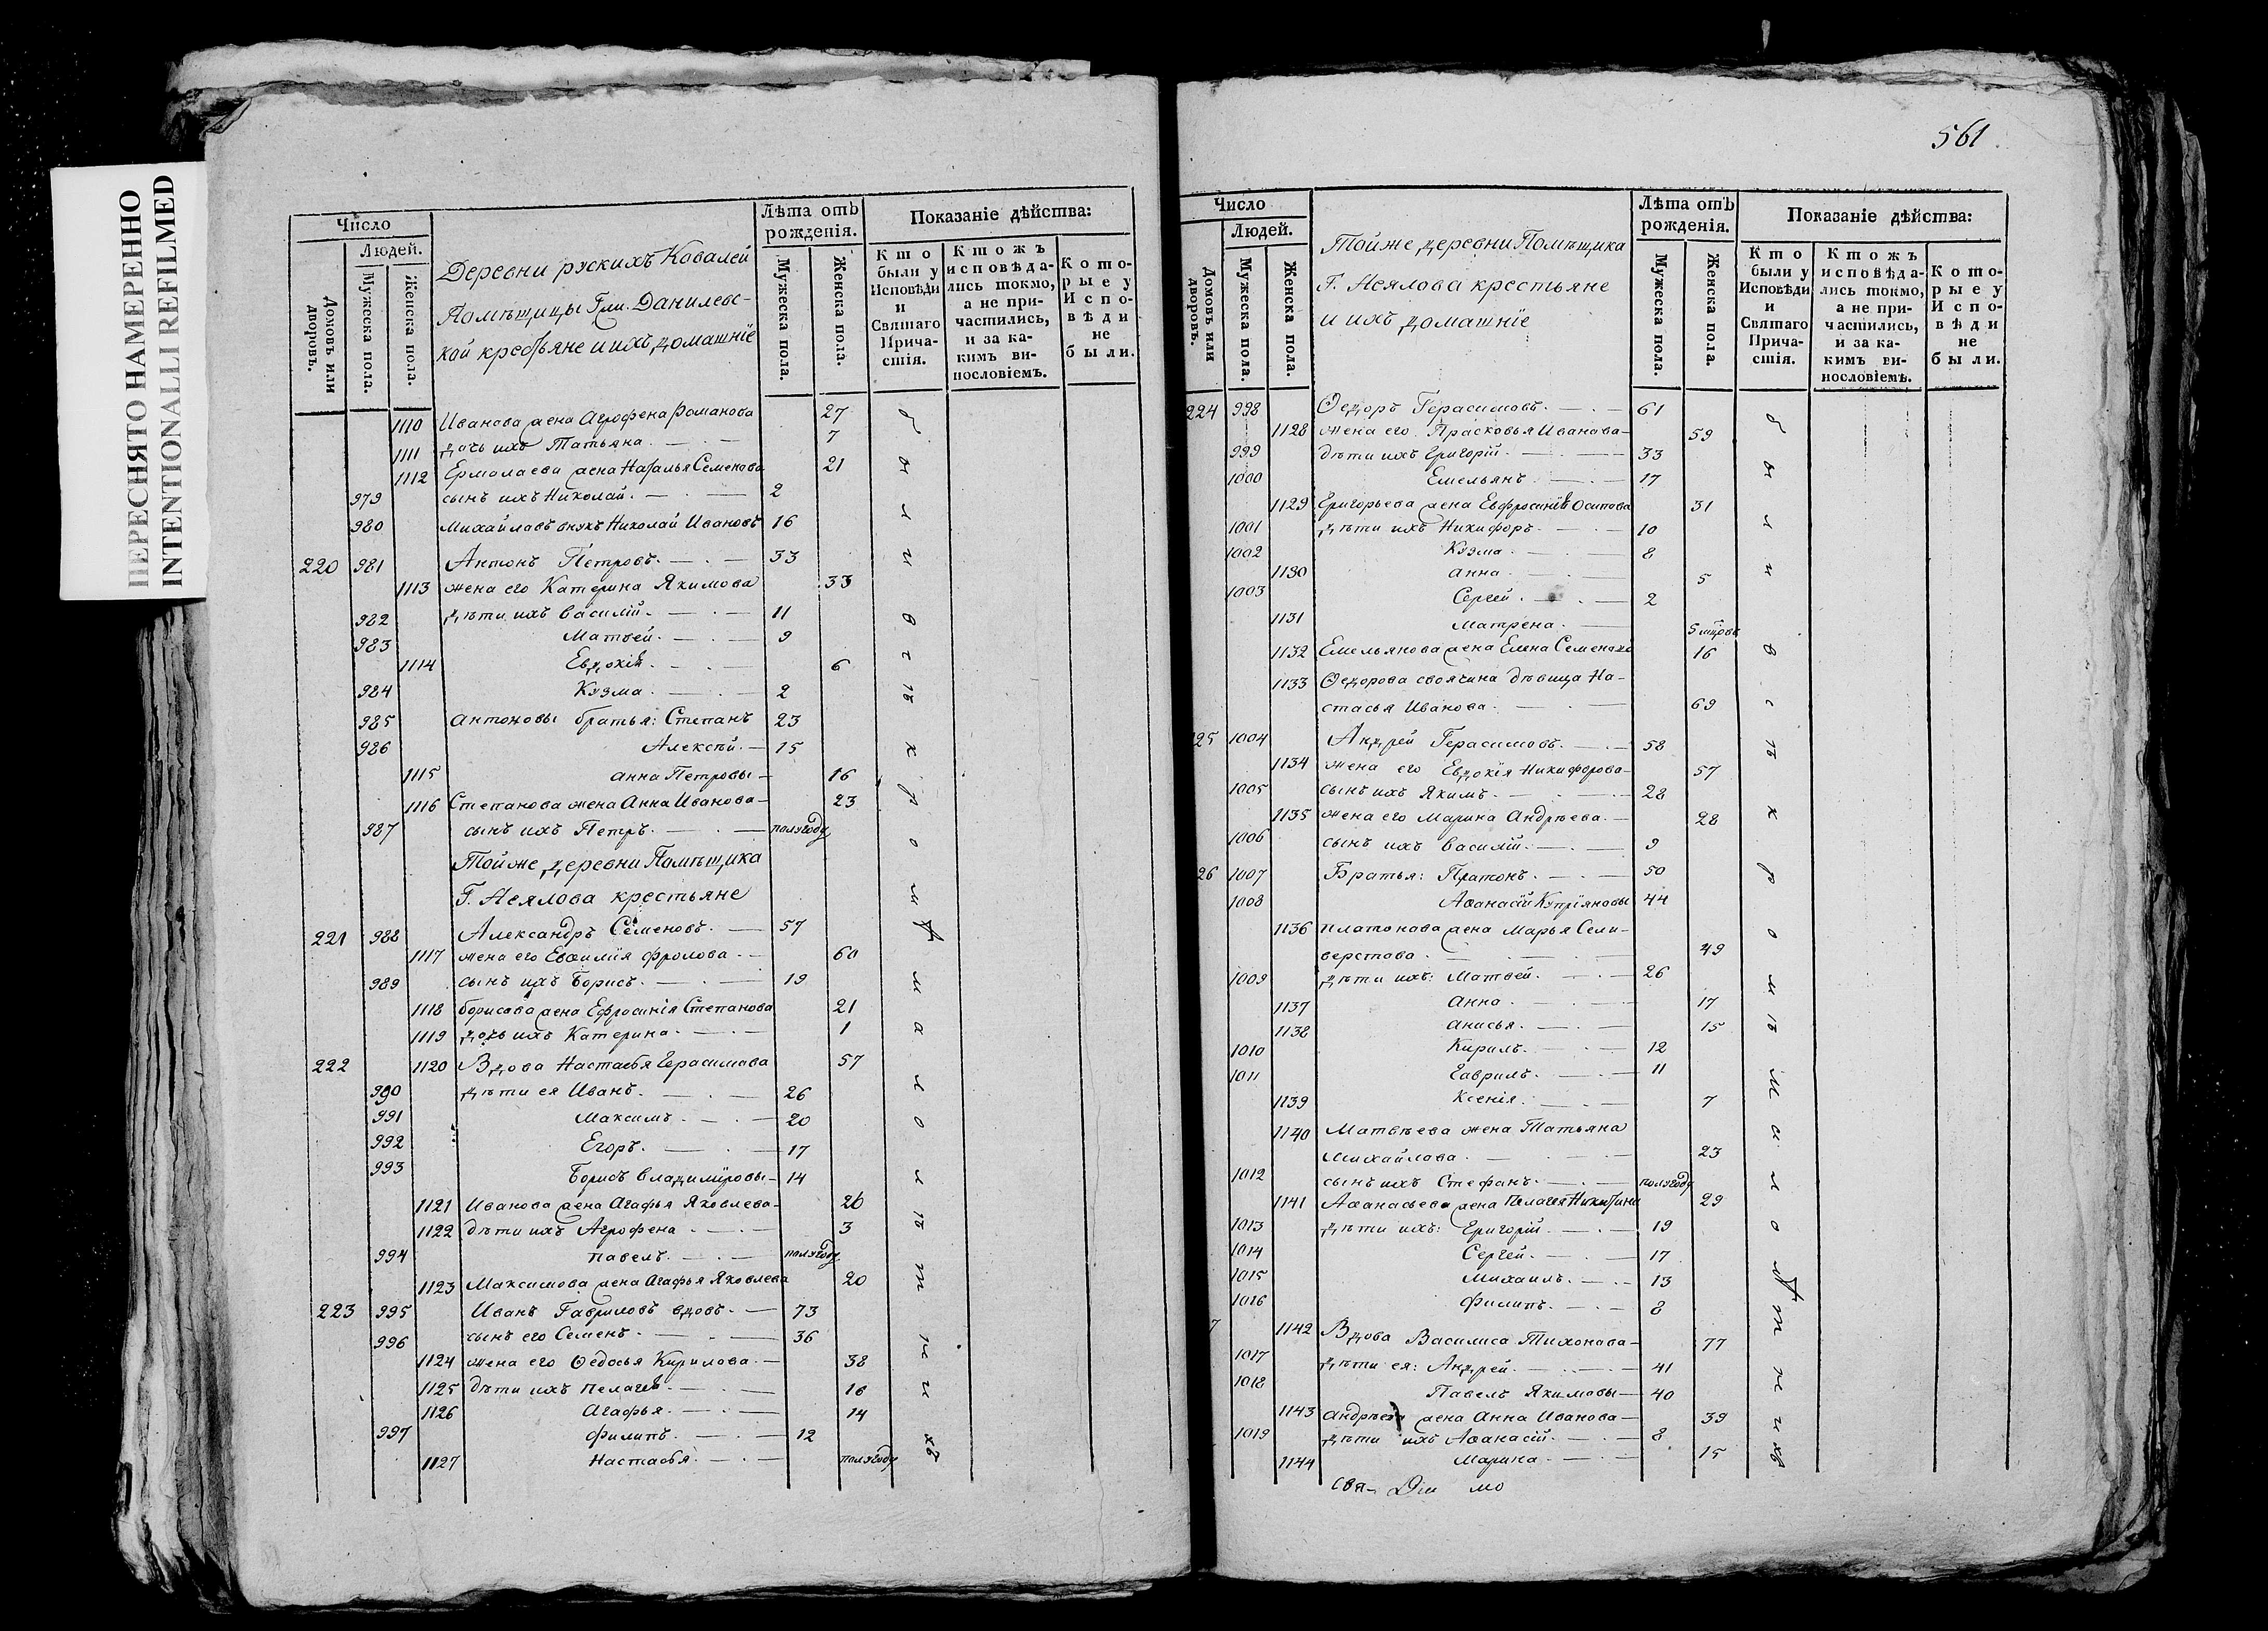 ПЕРЕСНЯТО НАМЕРЕННО
INTENTIONALLI REFILMED
Число
Людей.
Домовъ или дворовъ.
Мужеска пола.
Женска пола.
Деревни рускихъ Ковалей
Помѣщицы Гжи. Данилевс-
кой кресьтяне и ихъ домашніе
Лѣта отъ рожденія.
Мужеска пола.
Женска пола.
Показаніе дѣйства:
Кто были у Исповѣди и Святаго Прича-стія.
Ктожъ исповѣда-лись токмо, а не при-частились, и за ка-кимъ ви-нословіемъ.
Кото-рые у Испо-вѣди не были.
1110 Иванова жена Агрофена Романова 27
1111 дочь ихъ Татьяна. 7
1112 Ермолаева жена Наталья Семенова 21
979 сынъ ихъ Николай. 2
980 Михайловъ внукъ Николай Ивановъ 16
220 981 Антонъ Петровъ. 33
1113 жена его Катерина Якимова 33
982 дѣти ихъ Василій. 11
983 Матвей. 9
1114 Евдокія. 6
984 Кузма. 2
985 Антоновы братья: Степанъ 23
986 Алексѣй. 15
1115 Анна Петровы 16
1116 Степанова жена Анна Иванова 23
987 сынъ ихъ Петръ. полугоду
Тойже деревни Помѣщика
Г. Асялова крестьяне
221 988 Александръ Семеновъ. 57
1117 жена его Евфимія Фролова. 60
989 сынъ ихъ Борисъ. 19
1118 Борисова жена Ефросинія Степанова 21
1119 дочь ихъ Катерина. 1
222 1120 Вдова Настасья Герасимова 57
990 дѣти ея Иванъ. 26
991 Максимъ. 20
992 Егоръ. 17
993 Борисъ Владиміровы 14
1121 Иванова жена Агафья Яковлева 26
1122 дѣти ихъ Агрофена 3
994 Павелъ. полугоду
1123 Максимова жена Агафья Яковлева 20
223 995 Иванъ Гавриловъ вдовъ. 73
996 сынъ его Семенъ. 36
1124 жена его Ѳедосья Кирилова. 38
1125 дѣти ихъ Пелагея. 16
1126 Агафья. 14
997 Филипъ. 12
1127 Настасья. полугоду
561
Число
Людей.
Домовъ или дворовъ.
Мужеска пола.
Женска пола.
Тойже деревни Помѣщика
Г. Асялова крестьяне
и ихъ домашніе
Лѣта отъ рожденія.
Мужеска пола.
Женска пола.
Показаніе дѣйства:
Кто были у Исповѣди и Святаго Прича-стія.
Ктожъ исповѣда-лись токмо, а не при-частились, и за ка-кимъ ви-нословіемъ.
Кото-рые у Испо-вѣди не были.
224 998 Ѳедоръ Герасимовъ. 61
1128 жена его Прасковья Иванова 59
999 дѣти ихъ Григорій. 33
1000 Емельянъ. 17
1129 Григорьева жена Евфросинія Осипова 31
1001 дѣти ихъ Никифоръ. 10
1002 Кузма. 8
1130 Анна. 5
1003 Сергей. 2
1131 Матрена. 5
1132 Емельянова жена Елена Семенова 16
1133 Ѳедорова своячина дѣвица На-
стасья Иванова. 69
25 1004 Андрей Герасимовъ. 58
1134 жена его Евдокія Никифорова 57
1005 сынъ ихъ Якимъ. 28
1135 жена его Марина Андрѣева. 28
1006 сынъ ихъ Василій. 9
26 1007 Братья: Платонъ. 50
1008 Аѳанасій Купріяновы 44
1136 Платонова жена Марья Сели-
верстова. 49
1009 дѣти ихъ: Матвей. 26
1137 Анна. 17
1138 Анисья. 15
1010 Кирилъ. 12
1011 Гаврилъ. 11
1139 Ксенія. 7
1140 Матвѣева жена Татьяна
Михайлова. 23
1012 сынъ ихъ Стефанъ. полугоду
1141 Аѳанасьева жена Пелагея Никитина 29
1013 дѣти ихъ: Григорій. 19
1014 Сергей. 17
1015 Михаилъ. 13
1016 Филипъ. 8
7 1142 Вдова Василиса Тихонова 77
1017 дѣти ея: Андрей. 41
1018 Павелъ Якимовы 40
1143 Андрѣева жена Анна Иванова 39
1019 дѣти ихъ Аѳанасій. 8
1144 Марина. 15